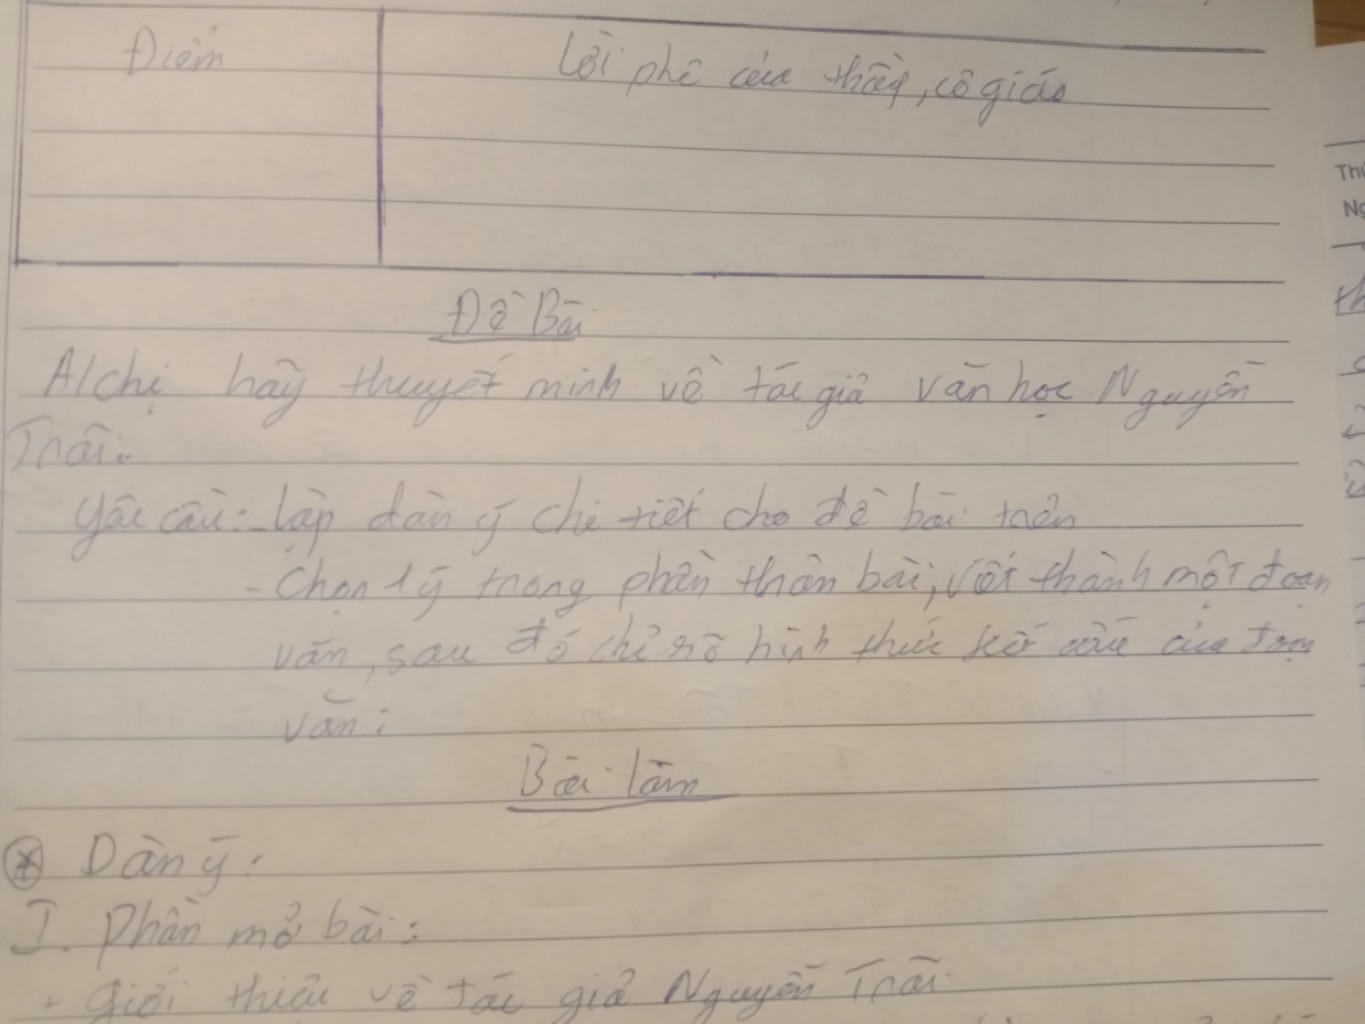 Điểm
Lời phê của thầy, cô giáo
Thi
Ng
Đề Bài
A/chị hãy thuyết minh về tác giả văn học Nguyễn
Trãi.
yêu cầu: - lập dàn ý chi tiết cho đề bài trên
- Chọn 1 ý trong phần thân bài, viết thành một đoạn
văn, sau đó chỉ rõ hình thức kết cấu của đoạn
văn:
Bài làm
* Dàn ý:
I. Phần mở bài:
+ giới thiệu về tác giả Nguyễn Trãi